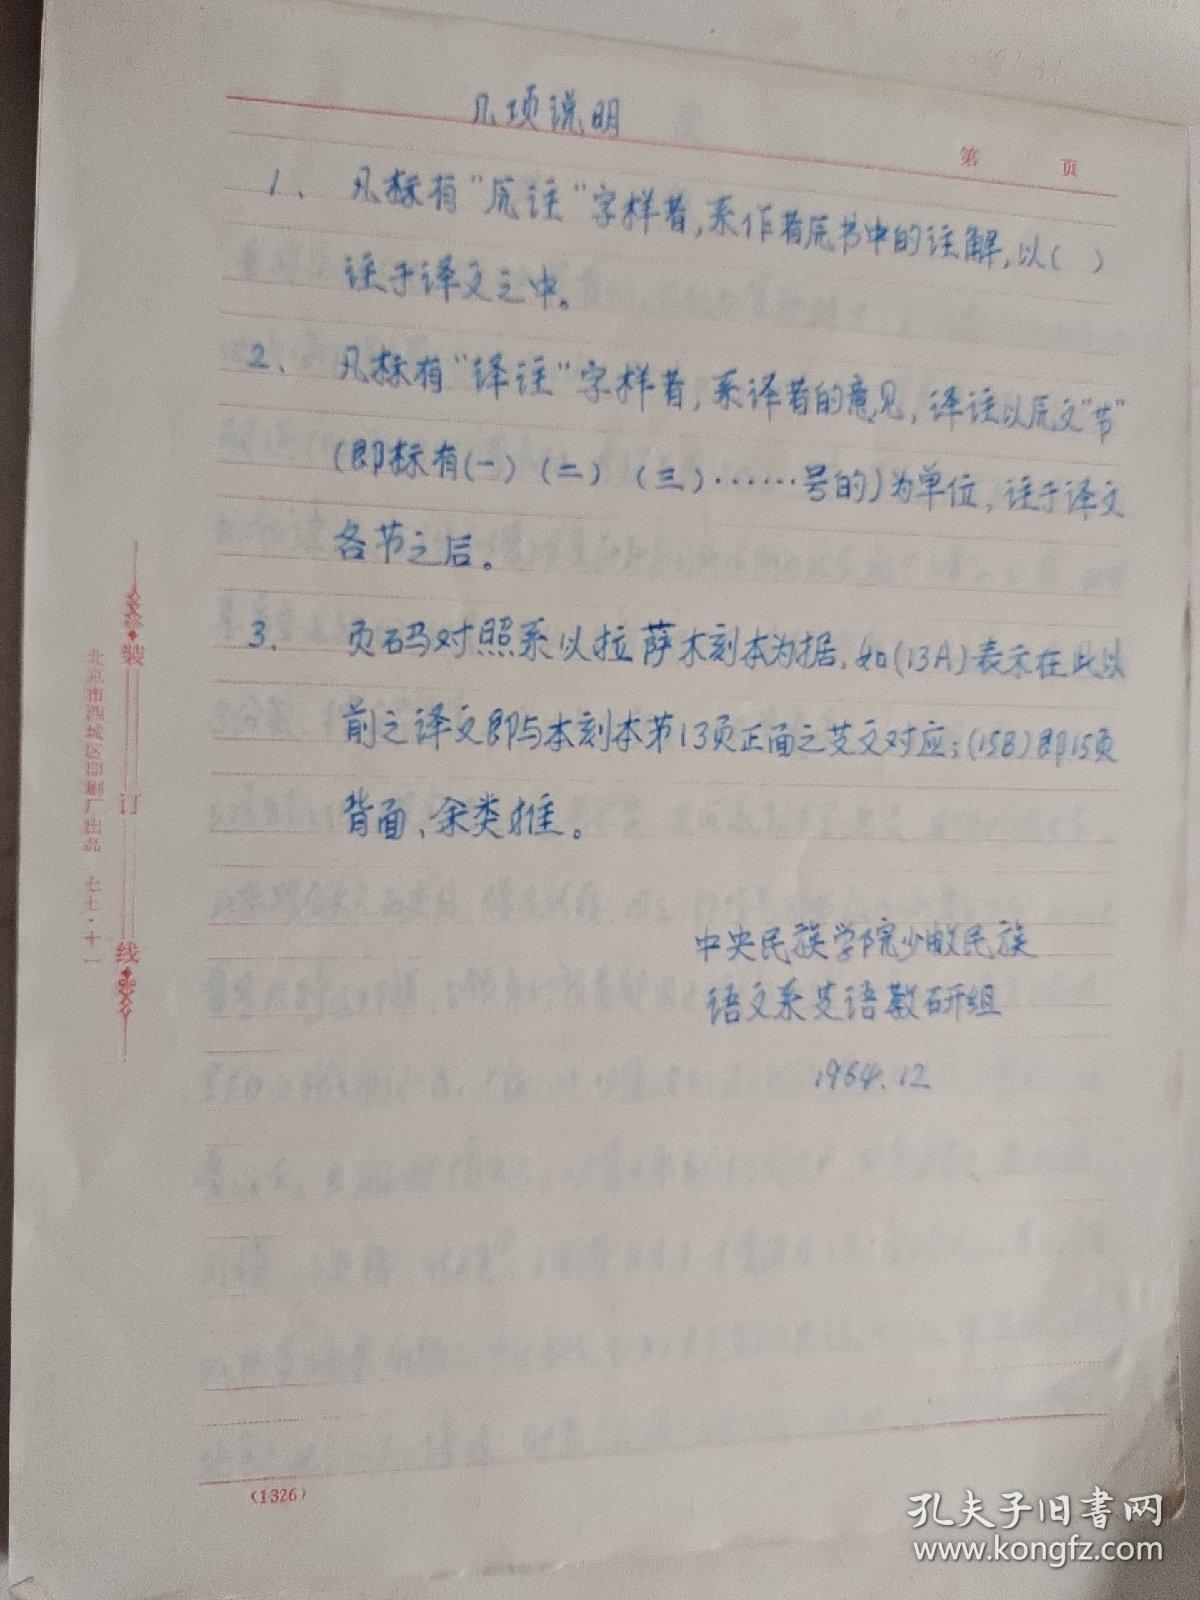 几项说明
第 页
1、凡标有"原註"字样者,系作者原书中的註解,以( )
註于译文之中。
2、凡标有"译註"字样者,系译者的意见,译註以原文"节"
(即标有(一)(二)(三)……号的)为单位,註于译文
各节之后。
3、页码对照系以拉萨木刻本为据,如(13A)表示在此以
前之译文即与木刻本第13页正面之藏文对应;(15B)即15页
背面、余类推。
中央民族学院少数民族
语文系藏语教研组
1964.12
装订线
北京市西城区印刷厂出品 七七·十一
(1326)
孔夫子旧书网
www.kongfz.com